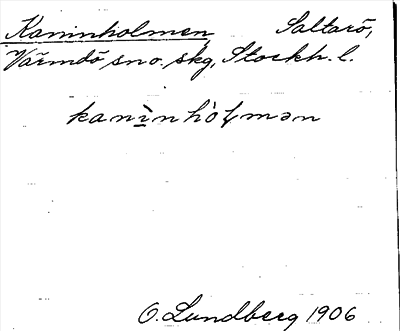 Kaninholmen, Saltarö,
Värmdö sn o. skg, Stockh. l.
kanìnhòɬmən
O. Lundberg 1906